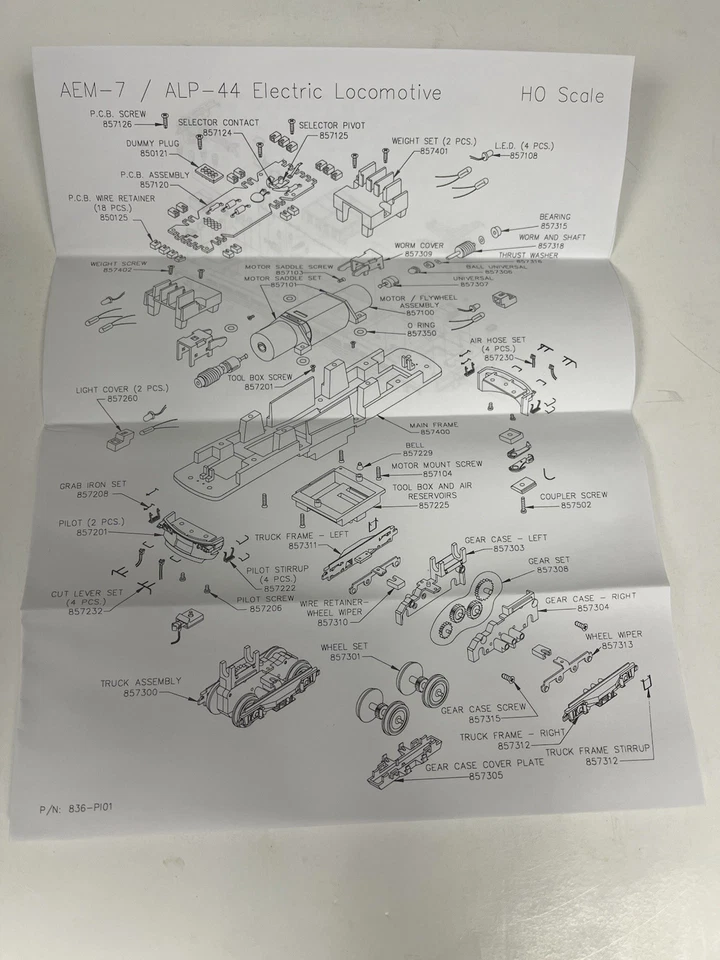 AEM-7 / ALP-44 Electric Locomotive
HO Scale
P.C.B. SCREW
857126
SELECTOR CONTACT
857124
SELECTOR PIVOT
857125
DUMMY PLUG
850121
WEIGHT SET (2 PCS.)
857401
L.E.D. (4 PCS.)
857108
P.C.B. ASSEMBLY
857120
P.C.B. WIRE RETAINER
(18 PCS.)
850125
BEARING
857315
WORM AND SHAFT
857318
WORM COVER
857309
THRUST WASHER
857316
WEIGHT SCREW
857402
MOTOR SADDLE SCREW
857103
MOTOR SADDLE SET
857101
BALL UNIVERSAL
857306
UNIVERSAL
857307
MOTOR / FLYWHEEL
ASSEMBLY
857100
O RING
857350
AIR HOSE SET
(4 PCS.)
857230
TOOL BOX SCREW
857201
LIGHT COVER (2 PCS.)
857260
MAIN FRAME
857400
BELL
857229
MOTOR MOUNT SCREW
857104
TOOL BOX AND AIR
RESERVOIRS
857225
COUPLER SCREW
857502
GRAB IRON SET
857208
PILOT (2 PCS.)
857201
TRUCK FRAME - LEFT
857311
GEAR CASE - LEFT
857303
GEAR SET
857308
PILOT STIRRUP
(4 PCS.)
857222
CUT LEVER SET
(4 PCS.)
857232
PILOT SCREW
857206
WIRE RETAINER-
WHEEL WIPER
857310
GEAR CASE - RIGHT
857304
WHEEL WIPER
857313
WHEEL SET
857301
TRUCK ASSEMBLY
857300
GEAR CASE SCREW
857315
TRUCK FRAME - RIGHT
857312
TRUCK FRAME STIRRUP
857312
GEAR CASE COVER PLATE
857305
P/N: 836-PI01